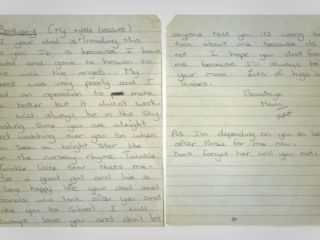 Bethany (my little treasure)
If your dad is reading this
to you it is because I have
died and gone to heaven to
live with the angels. My
chest was very poorly and I
had an operation to make
it better but it didn't work.
I will always be in the sky
making sure you are alright
and watching over you. So when
you see a bright star like
in the nursery rhyme Twinkle
Twinkle little star thats me.
Be a good girl and live a
long happy life your dad and
Granda will look after you and
take you to School. I will
always love you and don't let
anyone tell you its wrong to
talk about me because its
not. I hope you don't forget
me because I'm always be
your mam Lots of hugs and
kisses.
Goodbye
Mam
As I'm depending on you to look
after Rosie for me now.
Dont forget her will you not.